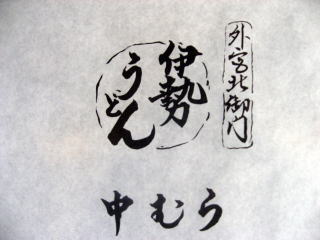 外宮北御門
伊勢
うどん
中むら